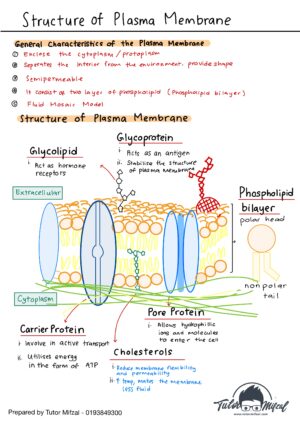 Structure of Plasma Membrane
General Characteristics of the Plasma Membrane
① Enclose the cytoplasm / protoplasm
② Seperates the interior from the environment, provide shape
③ Semipermeable
④ It consist of two layer of phospholipid (Phospholipid bilayer)
⑤ Fluid Mosaic Model
Structure of Plasma Membrane
Glycoprotein
i. Acts as an antigen
ii. Stabilise the structure
of plasma membrane
Glycolipid
i. Act as hormone
receptors
Extracellular
Phospholipid
bilayer
polar head
non polar
tail
Cytoplasm
Pore Protein
i. Allows hydrophilic
ions and molecules
to enter the cell
Carrier Protein
i. Involve in active transport
ii. Utilises energy
in the form of ATP
Cholesterols
i. Reduce membrane flexibility
and permeability
ii. ↑ temp, makes the membrane
less fluid
Tutor Mitzal
www.tutormitzal.com
Prepared by Tutor Mitzal - 0193849300